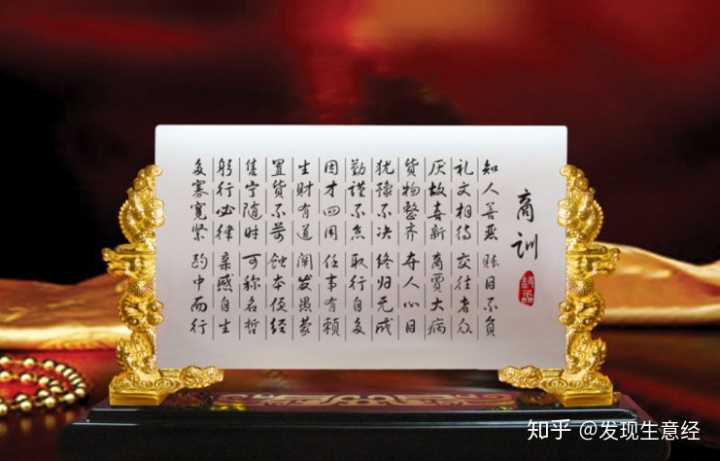 商训
知人善恶 账目不负
礼文相待 交往者众
厌故喜新 商贾大病
货物整齐 夺人心目
犹豫不决 终归无成
勤谨不怠 取行自多
因才四用 任事有赖
生财有道 开发愚蒙
置货不苛 蚀本便经
售宁随时 可称名哲
躬行必律 亲感自生
多寡宽紧 酌中而行
知乎 @发现生意经